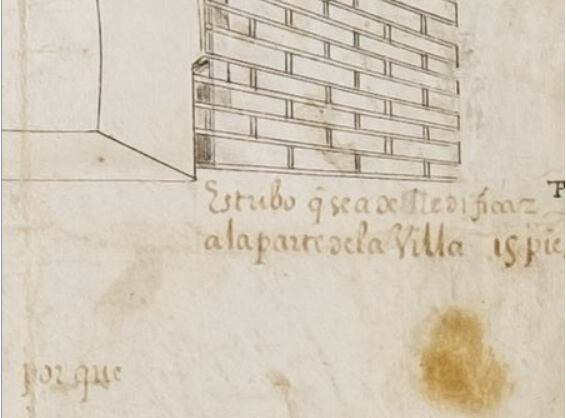 Estribo q̃ sea de Redificar
a la parte de la Villa 15 pie
por que